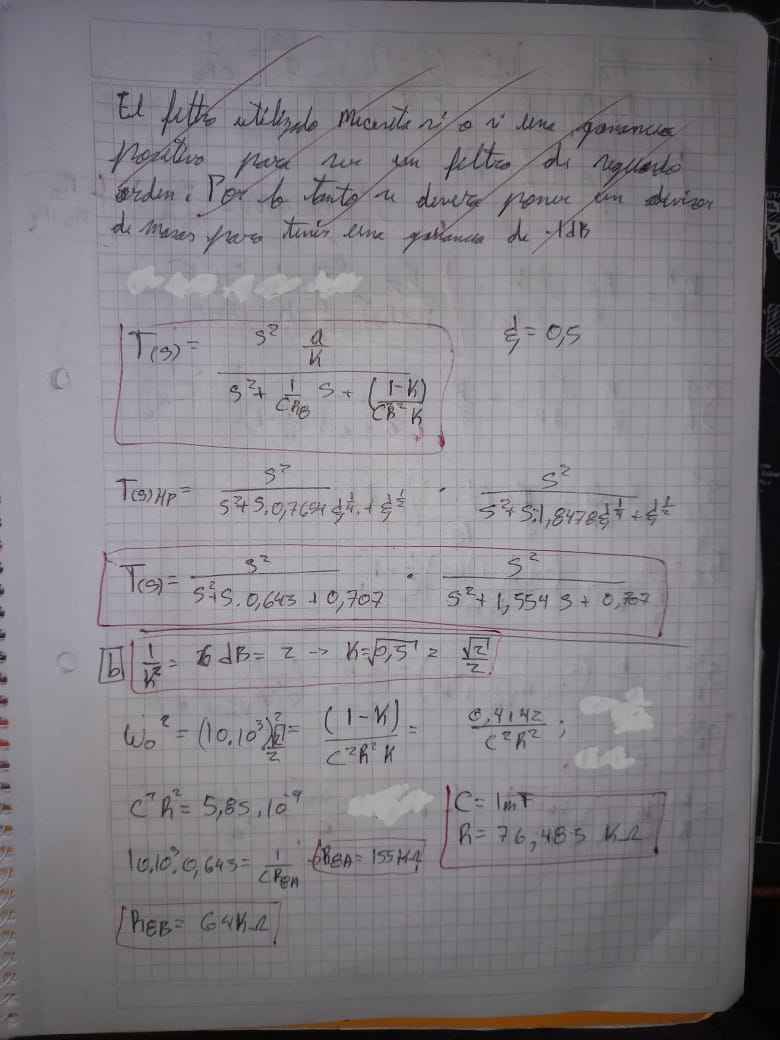 El filtro utilizado necesita si o si una ganancia
positivo para ser un filtro de segundo
orden. Por lo tanto se deverá poner un divisor
de para tener una ganancia de -1dB
T(s) = s² a/K / (s² + 1/(CR_B) s + (1-K)/(CR²K))
ξ = 0,5
T(s)HP = s² / (s² + s.0,7654 ξ^(1/4) + ξ^(1/2)) . s² / (s² + s.1,8478 ξ^(1/4) + ξ^(1/2))
T(s) = s² / (s² + s.0,643 + 0,707) . s² / (s² + 1,554 s + 0,707)
b 1/K² = 6 dB = 2 → K = √0,5 = √2/2
Wo² = (10.10³)² √2/2 = (1-K)/(C²R²K) = 0,4142/(C²R²) ;
C²R² = 5,85.10⁻⁹
C = 1mF
R = 76,485 KΩ
10.10³.0,643 = 1/(CR_BA) R_BA = 155KΩ
R_BB = 64KΩ